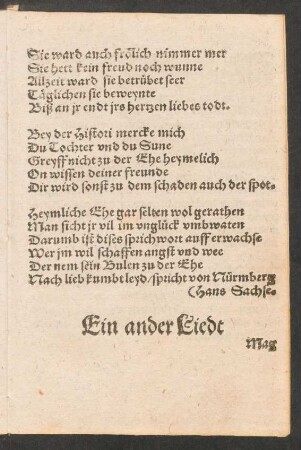 Sie ward auch frölich nimmer mer
Sie hett kein freud noch wunne
Allzeit ward sie betrübet seer
Täglichen sie beweynte
Biß an jr endt jrs hertzen liebes todt.
Bey der Histori mercke mich
Du Tochter vnd du Sune
Greyff nicht zu der Ehe heymelich
On wissen deiner freunde
Dir wird sonst zu dem schaden auch der spot.
Heymliche Ehe gar selten wol gerathen
Man sicht jr vil im vnglück vmbwaten
Darumb ist dises sprichwort auff erwachse
Wer jm wil schaffen angst vnd wee
Der nem sein Bulen zu der Ehe
Nach lieb kumbt leyd/ spricht von Nürmberg
(Hans Sachse.
Ein ander Liedt
Mag